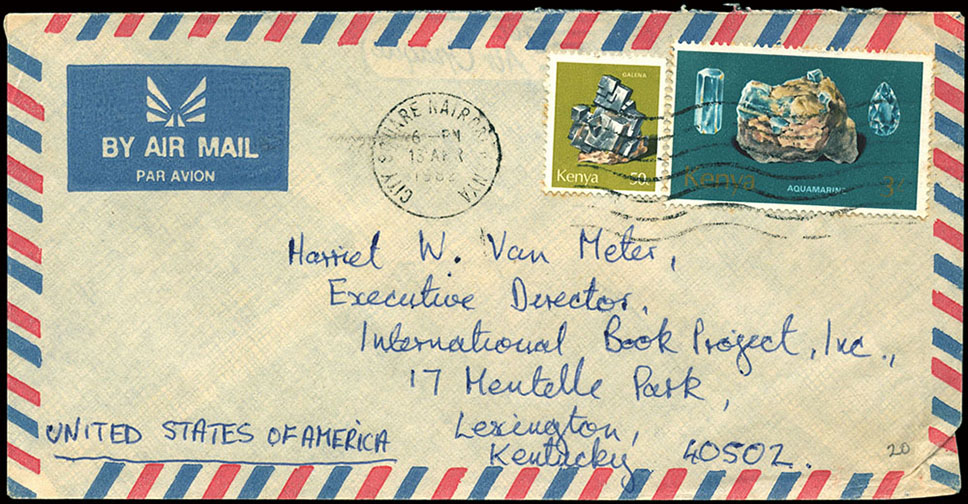 BY AIR MAIL
PAR AVION
CITY SQUARE NAIROBI
6 - PM
13 APR
1982
GALENA
Kenya 50c
Kenya AQUAMARINE 3/-
Harriet W. Van Meter,
Executive Director,
International Book Project, Inc.,
17 Mentelle Park,
Lexington,
Kentucky 40502.
UNITED STATES OF AMERICA
20